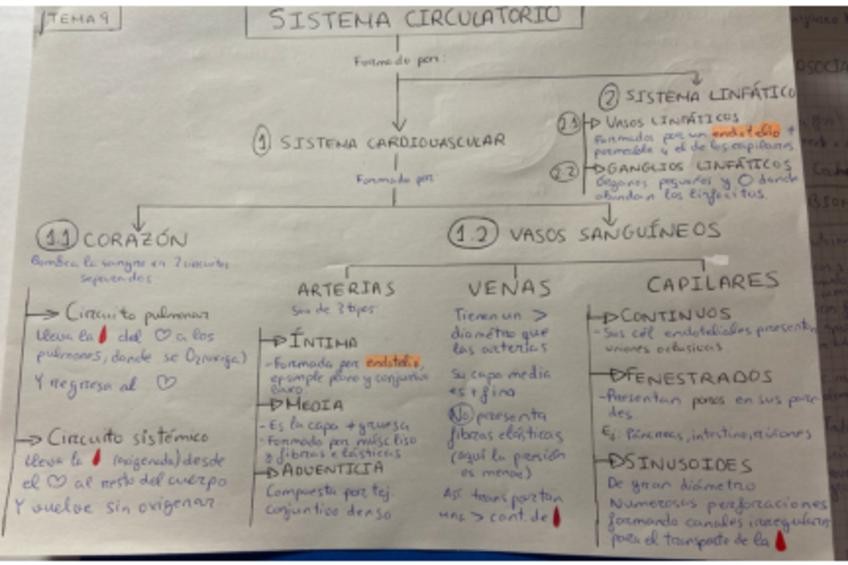 TEMA 9
SISTEMA CIRCULATORIO
Formado por:
② SISTEMA LINFÁTICO
2.1 VASOS LINFÁTICOS
Formados por un endotelio +
permeable q el de los capilares
2.2 GANGLIOS LINFÁTICOS
Órganos pequeños y O donde
abundan los linfocitos.
① SISTEMA CARDIOVASCULAR
Formado por
1.1 CORAZÓN
Bombea la sangre en 2 circuitos
separados
Circuito pulmonar
lleva la 🩸 del ♡ a los
pulmones, donde se
Y regresa al ♡
Circuito sistémico
lleva la 🩸 (oxigenada) desde
el ♡ al resto del cuerpo
Y vuelve sin oxigenar
1.2 VASOS SANGUÍNEOS
ARTERIAS
Son de 3 tipos
ÍNTIMA
-Formada por endotelio,
plano y conjuntivo
laxo
MEDIA
-Es la capa + gruesa
-Formado por músc liso
y fibras elásticas
ADVENTICIA
Compuesta por tej.
conjuntivo denso
VENAS
Tienen un >
diámetro que
las arterias
Su capa media
es + fina
No presenta
fibras elásticas
(aquí la presión
es menor)
Así transportan
una > cant. de 🩸
CAPILARES
CONTINUOS
-Sus cél endoteliales presentan
uniones oclusivas
FENESTRADOS
-Presentan poros en sus pare
des.
Ej: Páncreas, intestino, riñones
SINUSOIDES
De gran diámetro
Numerosas perforaciones
formando canales irregulares
para el transporte de la 🩸